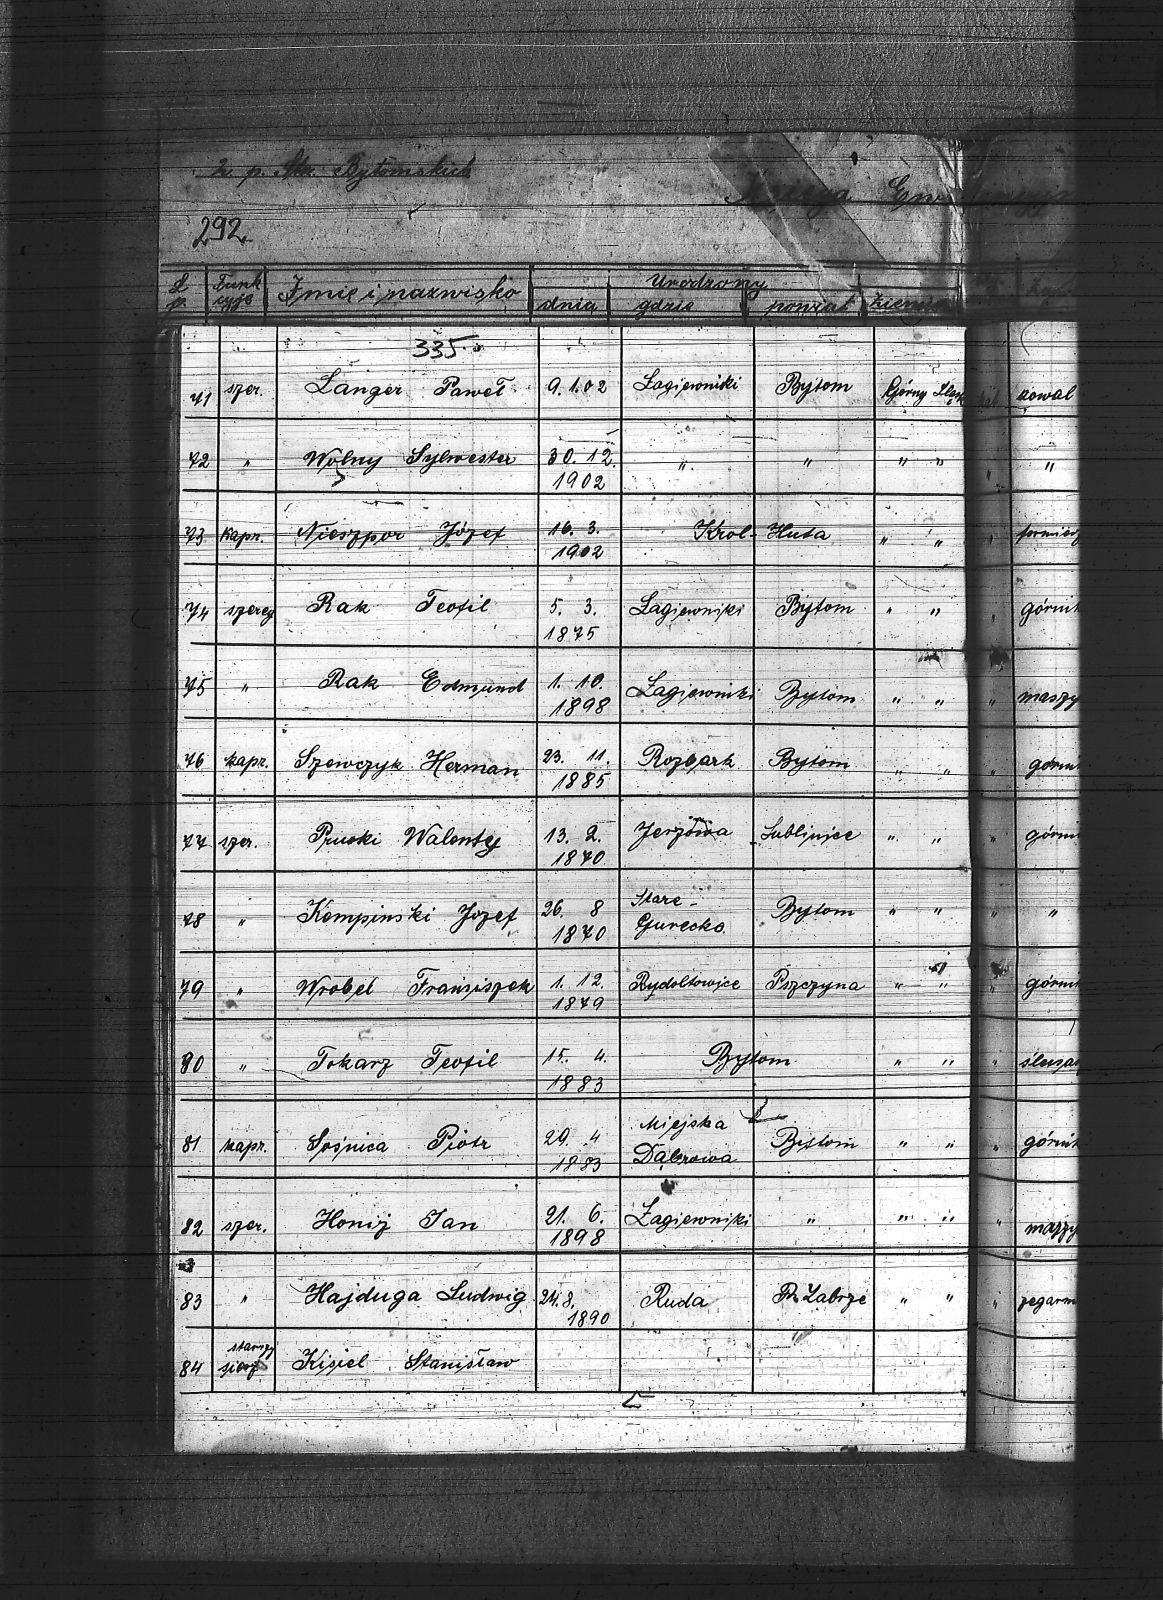 2 p. Strz. Bytomskich
292
L. p. Funkcyja Imię i nazwisko dnia Urodzony gdzie powiat Ziemia
335.
71 szer. Langer Paweł 9.1.02 Łagiewniki Bytom Górny Śląsk kowal
72 " Wolny Sylwester 30. 12. 1902 " " " " " "
73 kapr. Nieszpor Józef 16. 3. 1902 Król-Huta " " "
74 szereg Rak Teofil 5. 3. 1875 Łagiewniki Bytom " " " górnik
75 " Rak Edmund 1. 10. 1898 Łagiewniki Bytom " " " maszy
76 kapr. Szewczyk Herman 23. 11. 1885 Rozbark Bytom " " " górnik
77 szer. Prucki Walenty 13. 2. 1870 Jerzowa Lublinjec " " " górnik
78 " Kempinski Józef 26. 8 1870 Stare-Gurecko Bytom " " " "
79 " Wrobel Franciszek 1. 12. 1879 Rydoltowice Pszczyna " " " górnik
80 " Tokarz Teofil 15. 4. 1883 Bytom " " " ślusar
81 kapr. Sośnica Piotr 29. 4 1883 Miejska Dąbrowa Bytom " " " górnik
82 szer. Honij Jan 21. 6. 1898 Łagiewniki " " " " maszy
83 " Hajduga Ludwig 24.8. 1890 Ruda Zabrze " " " zegarm
84 starszy szer Kisiel Stanisław